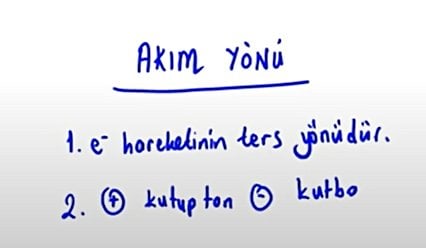 AKIM YÖNÜ
1. e⁻ hareketinin ters yönüdür.
2. ⊕ kutuptan ⊖ kutba